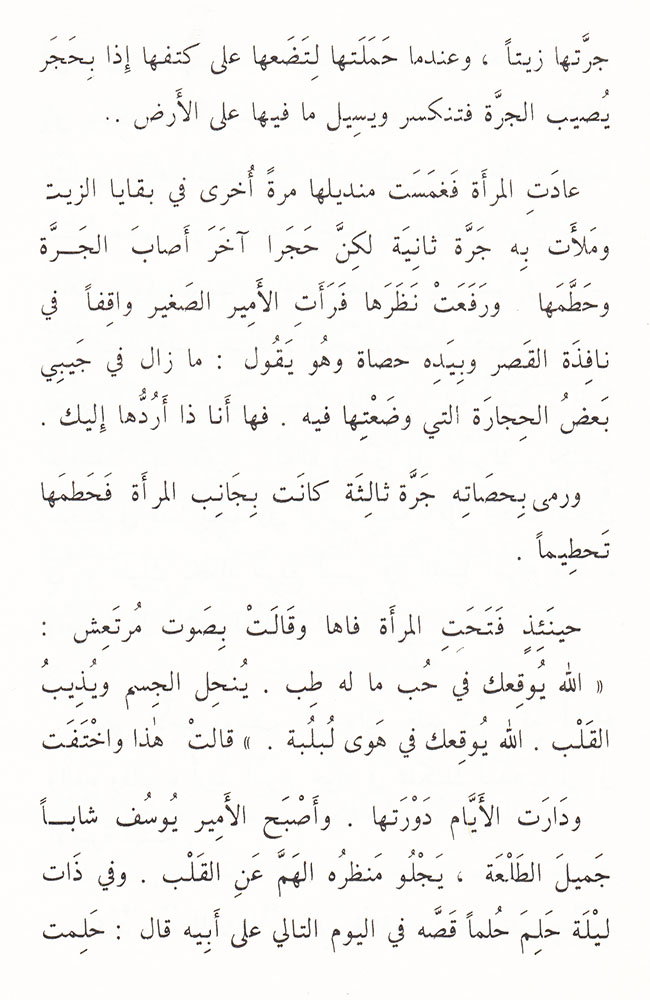 جرَّتها زيتاً ، وعندما حَمَلَتها لِتَضَعها على كتفها إِذا بِحَجَر
يُصيب الجرَّة فتنكسر ويسِيل ما فيها على الأَرض ..
عادَتِ المرأَة فَغمَسَت منديلها مرةً أُخرى في بقايا الزيت
ومَلأَت بِه جَرَّة ثانِيَة لكِنَّ حَجَرا آخَرَ أَصابَ الجَـــرَّة
وحَطَّمَها ورَفَعَتْ نَظَرَها فَرَأَتِ الأَمِير الصَغير واقِفاً في
نافِذَة القَصر وبِيَدِه حصاة وهُو يَقُول : ما زال في جَيبِي
بَعضُ الحِجارَة التي وضَعْتِها فيه . فها أَنا ذا أَرُدُّها إِليك .
ورمى بِحصَاتِه جَرَّة ثالِثَة كانَت بِجَانِب المرأَة فَحَطمَها
تَحطِيماً .
حينَئِذٍ فَتَحَتِ المرأَة فاها وقَالَتْ بِصَوت مُرتَعِش :
« الله يُوقِعك في حُب ما له طِب . يُنحِل الجِسم ويُذِيبُ
القَلْب . الله يُوقِعك في هَوى لُبلُبة . » قالتْ هٰذا واخْتَفَت
ودَارَت الأَيَّام دَوْرَتها . وأَصْبَح الأَمِير يُوسُف شابـــاً
جَميلَ الطَلْعَة ، يَجْلُو مَنظرُه الهَمَّ عَنِ القَلْب . وفي ذَات
ليْلَة حَلِمَ حُلماً قَصَّه في اليوم التالي على أَبِيه قال : حَلِمت